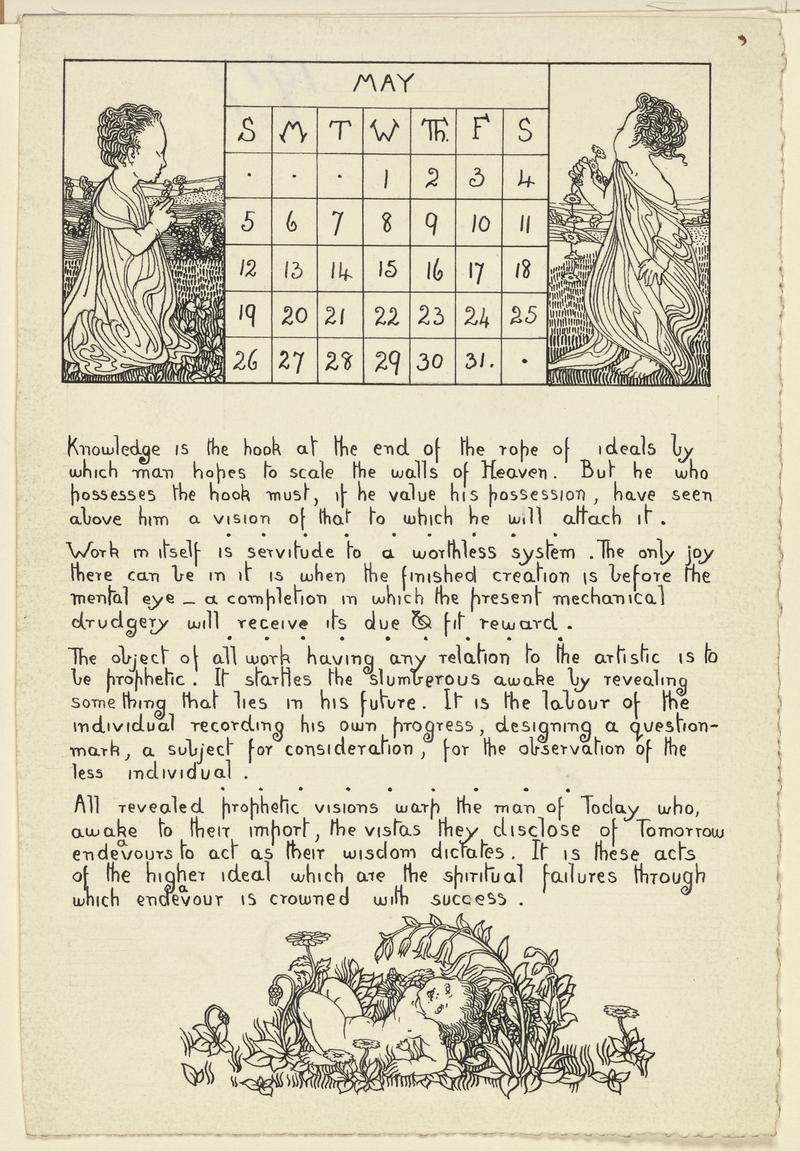 MAY
S M T W Th. F S
. . . 1 2 3 4
5 6 7 8 9 10 11
12 13 14 15 16 17 18
19 20 21 22 23 24 25
26 27 28 29 30 31. .
Knowledge is the hook at the end of the rope of ideals by
which man hopes to scale the walls of Heaven. But he who
possesses the hook must, if he value his possession, have seen
above him a vision of that to which he will attach it.
Work in itself is servitude to a worthless system. The only joy
there can be in it is when the finished creation is before the
mental eye — a completion in which the present mechanical
drudgery will receive its due & fit reward.
The object of all work having any relation to the artistic is to
be prophetic. It startles the slumberous awake by revealing
something that lies in his future. It is the labour of the
individual recording his own progress, designing a question-
mark, a subject for consideration, for the observation of the
less individual.
All revealed prophetic visions warp the man of Today who,
awake to their import, the vistas they disclose of Tomorrow
endeavours to act as their wisdom dictates. It is these acts
of the higher ideal which are the spiritual failures through
which endeavour is crowned with success.